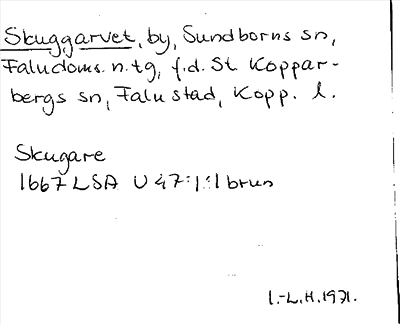 Skuggarvet, by, Sundborns sn,
Faludoms. n. tg, f.d. St. Koppar-
bergs sn, Falu stad, Kopp. l.
Skugare
1667 LSA U 47:1:1 brun
I.-L.H. 1971.